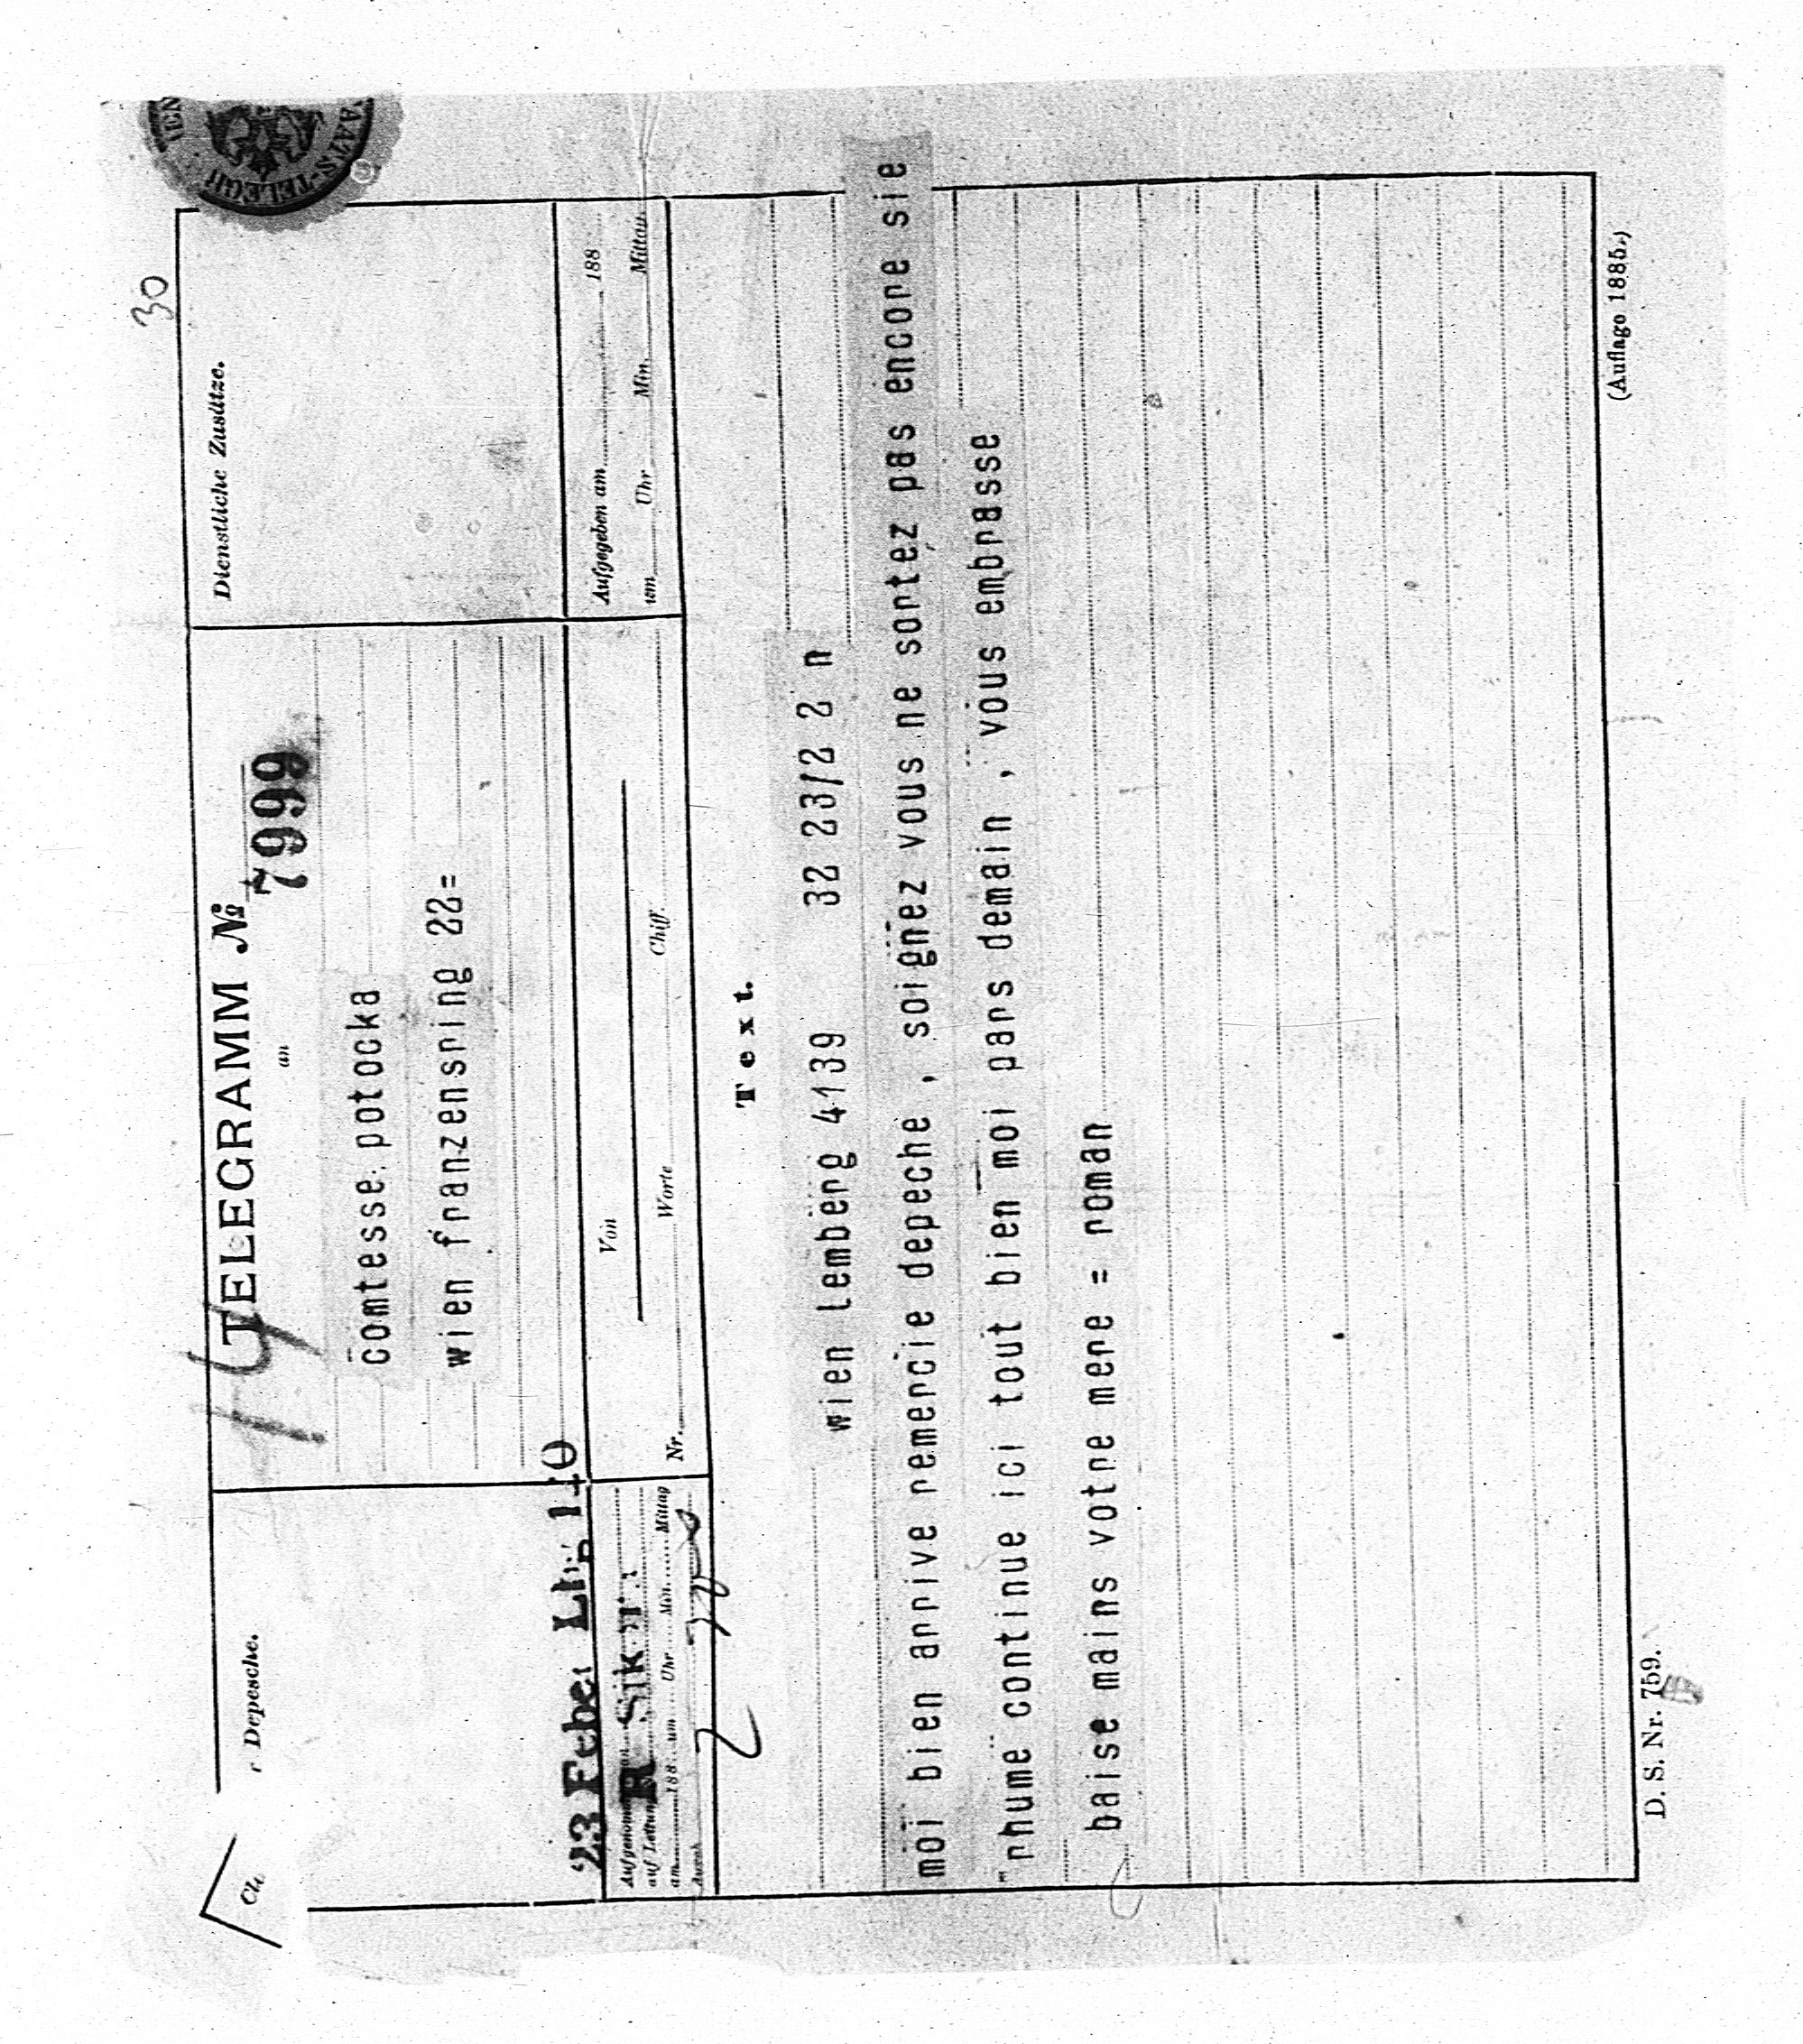 30
TELEGRAMM №
7999
an
Depesche.
Dienstliche Zusätze.
14
comtesse potocka
wien franzensring 22=
23 Feber
Aufgegeben am 188
um Uhr Min. Mittag
Von
Nr. Worte Chiff.
188 um Uhr Min. Mittag
Text.
wien lemberg 4139 32 23/2 2 n
moi bien arrive remercie depeche , soignez vous ne sortez pas encore sie
rhume continue ici tout bien moi pars demain , vous embrasse
baise mains votre mere = roman
D. S. Nr. 759.
(Auflage 1885.)